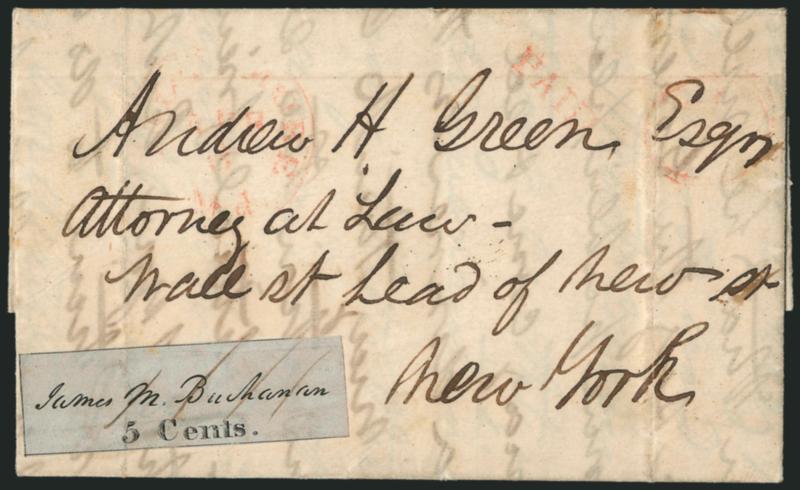 PAID
Andrew H Green, Esqr
Attorney at Law -
Wall st head of New st
New York
James M. Buchanan
5 Cents.